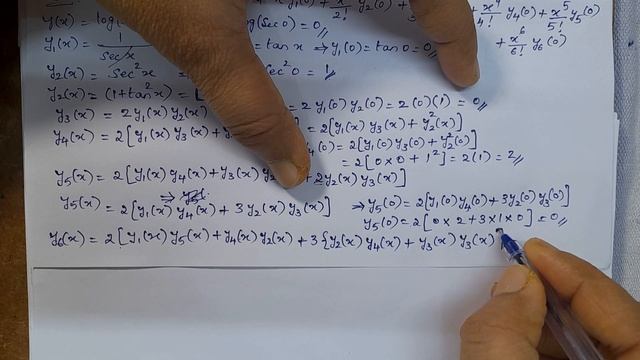 y₁(0) + x²/2! y₂(0) + x⁴/4! y₄(0) + x⁵/5! y₅(0)
y(x) = log( log(sec 0) = 0 + x⁶/6! y₆(0)
y₁(x) = 1/sec x = tan x ⇒ y₁(0) = tan 0 = 0
y₂(x) = sec²x sec²0 = 1
y₂(x) = (1+tan²x) = [
y₃(x) = 2 y₁(x) y₂(x) = 2 y₁(0) y₂(0) = 2(0)(1) = 0
y₄(x) = 2[y₁(x) y₃(x) + = 2[y₁(x) y₃(x) + y₂²(x)]
y₄(0) = 2[y₁(0) y₃(0) + y₂²(0)]
= 2[0×0 + 1²] = 2(1) = 2
y₅(x) = 2[y₁(x) y₄(x) + y₃(x) y₂ + 2y₂(x) y₃(x)]
y₅(x) = 2[y₁(x) y₄(x) + 3 y₂(x) y₃(x)] ⇒ y₅(0) = 2[y₁(0) y₄(0) + 3y₂(0) y₃(0)]
y₅(0) = 2[0×2 + 3×1×0] = 0
y₆(x) = 2[y₁(x) y₅(x) + y₄(x) y₂(x) + 3{y₂(x) y₄(x) + y₃(x) y₃(x)